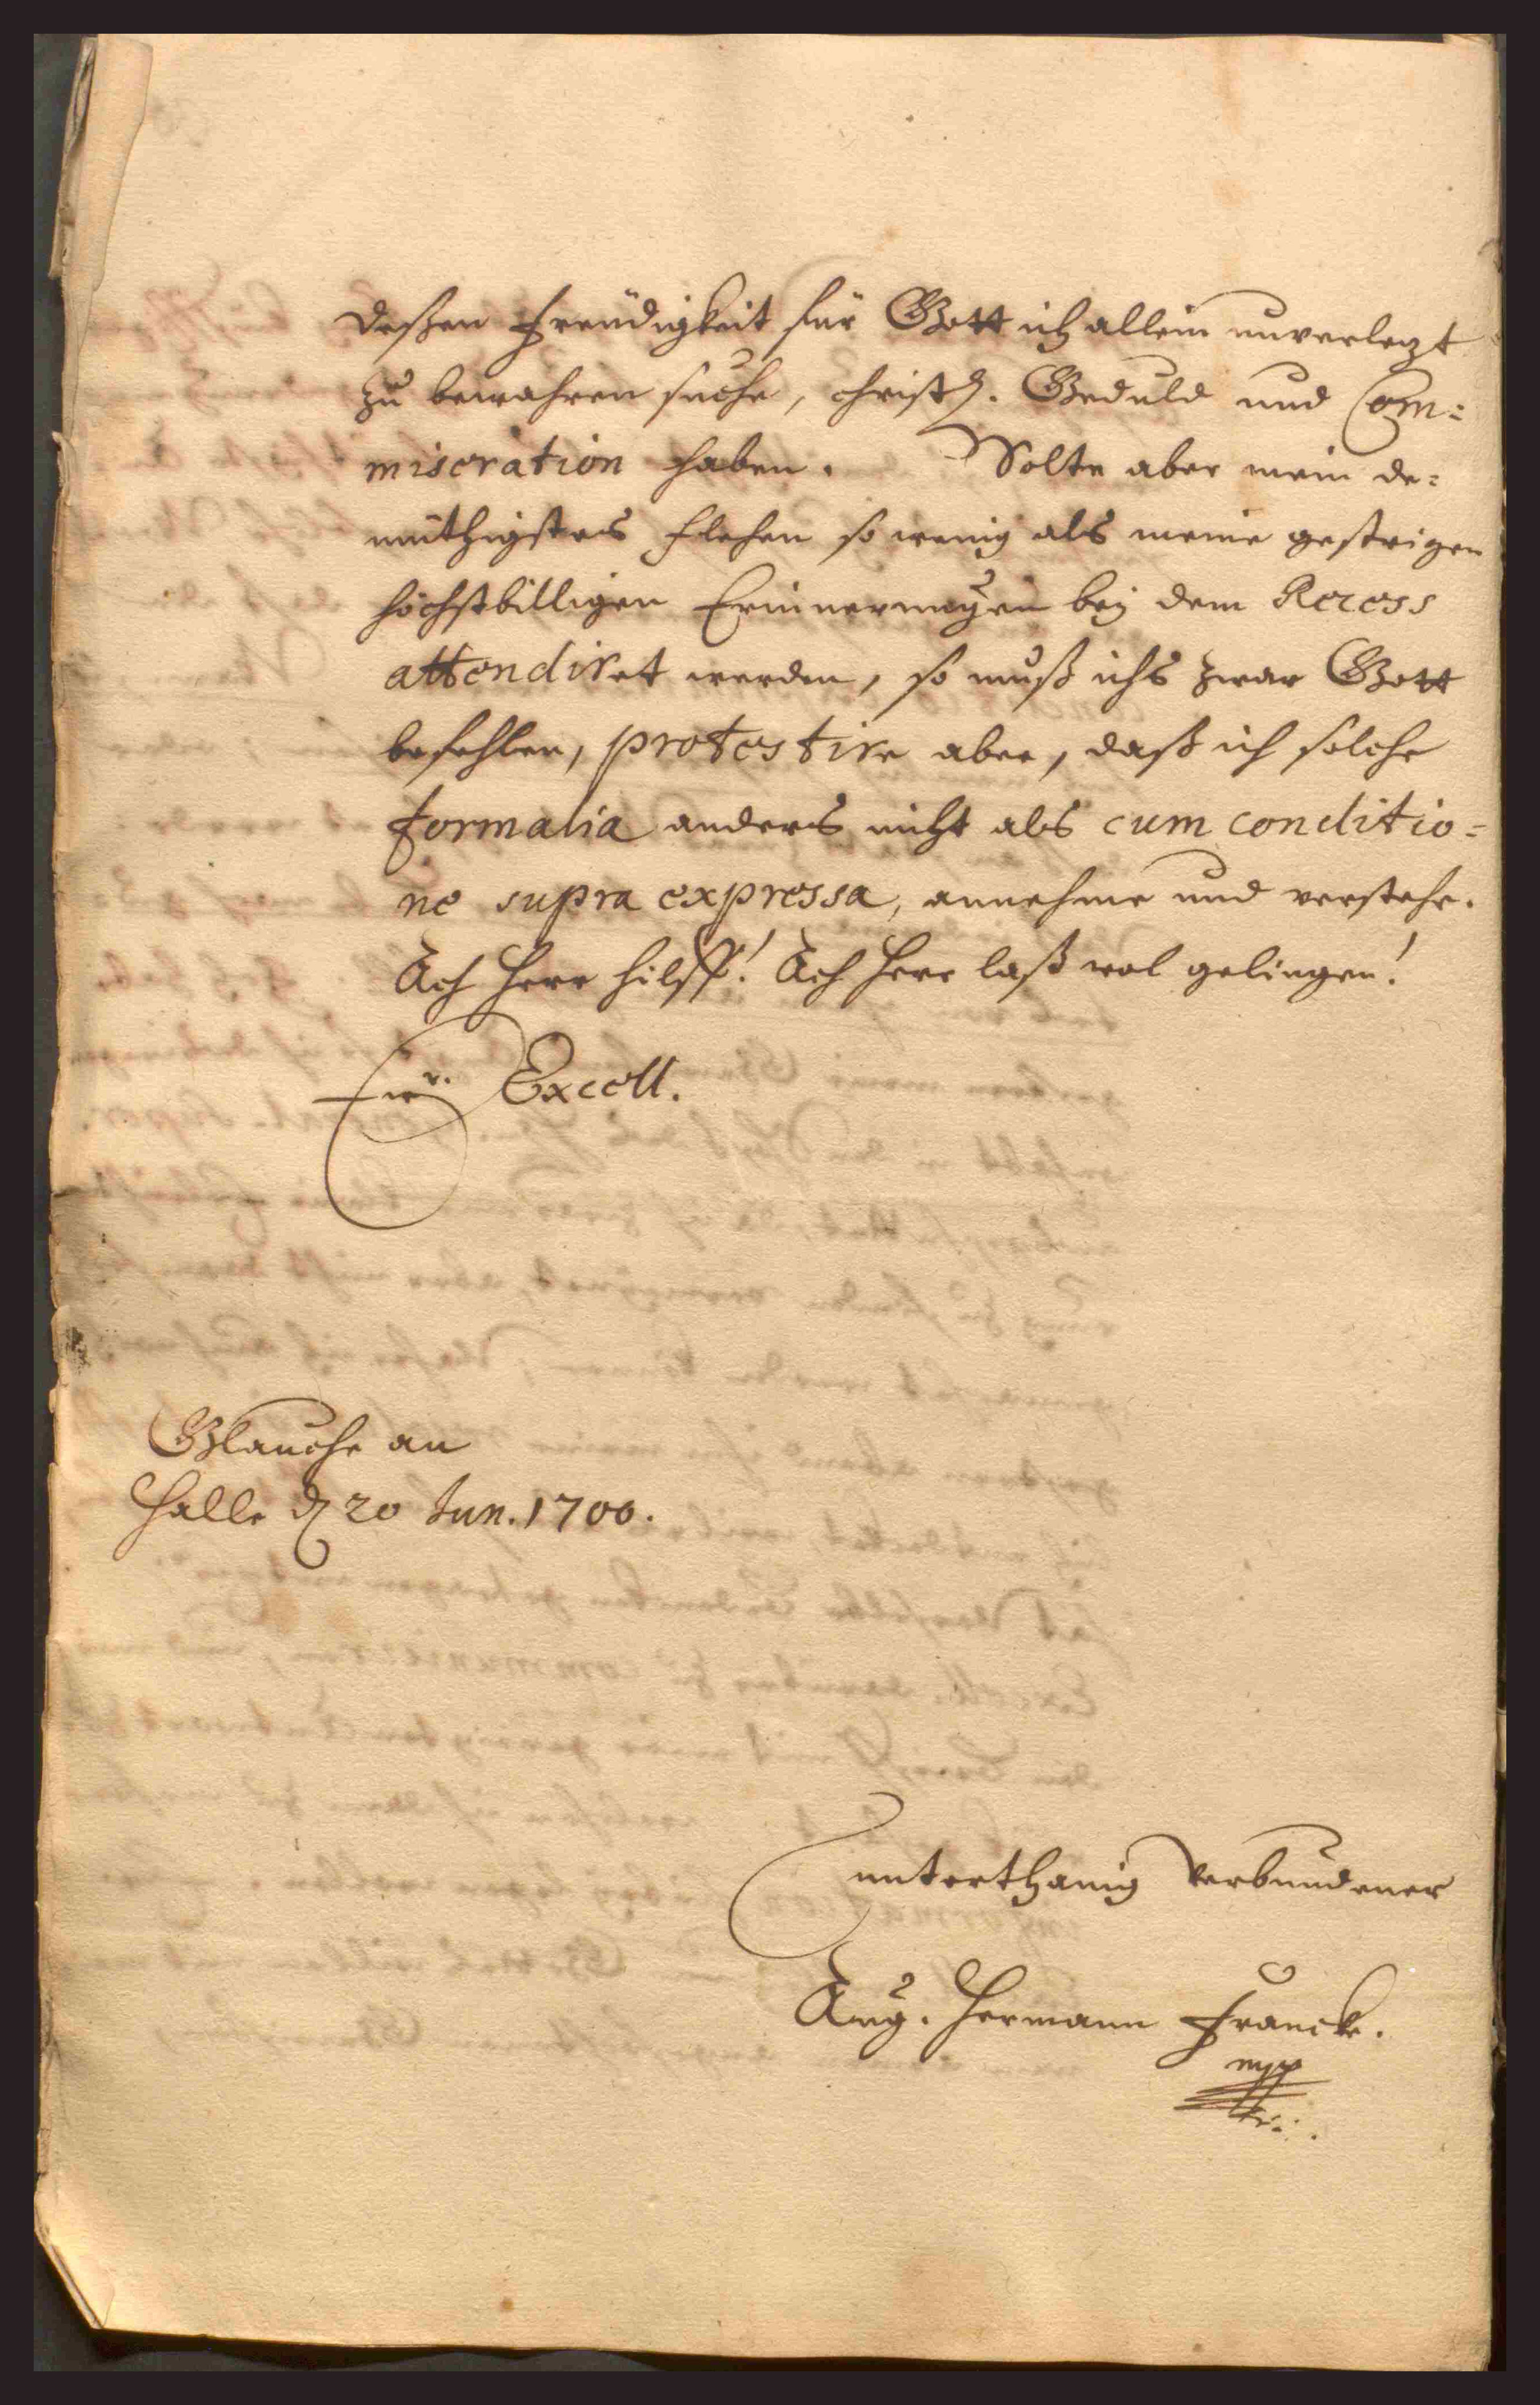 deßen Freudigkeit für Gott ich allein unverlezt
zu bewahren suche, christl. Geduld und Com=
miseration haben. Solte aber mein de=
müthigstes Flehen so wenig als meine gestrigen
höchstbilligen Erinnerungen bey dem Recess
attendiret werden, so muß ichs zwar Gott
befehlen, protestire aber, daß ich solche
formalia anders nicht als cum conditio=
ne supra expressa, annehme und verstehe.
Ach Herr hilff! Ach Herr laß wol gelingen!
Ew. Excell.
Glauche an
Halle d 20 Jun. 1700.
unterthänig verbundener
Aug. Hermann Francke.
mpp